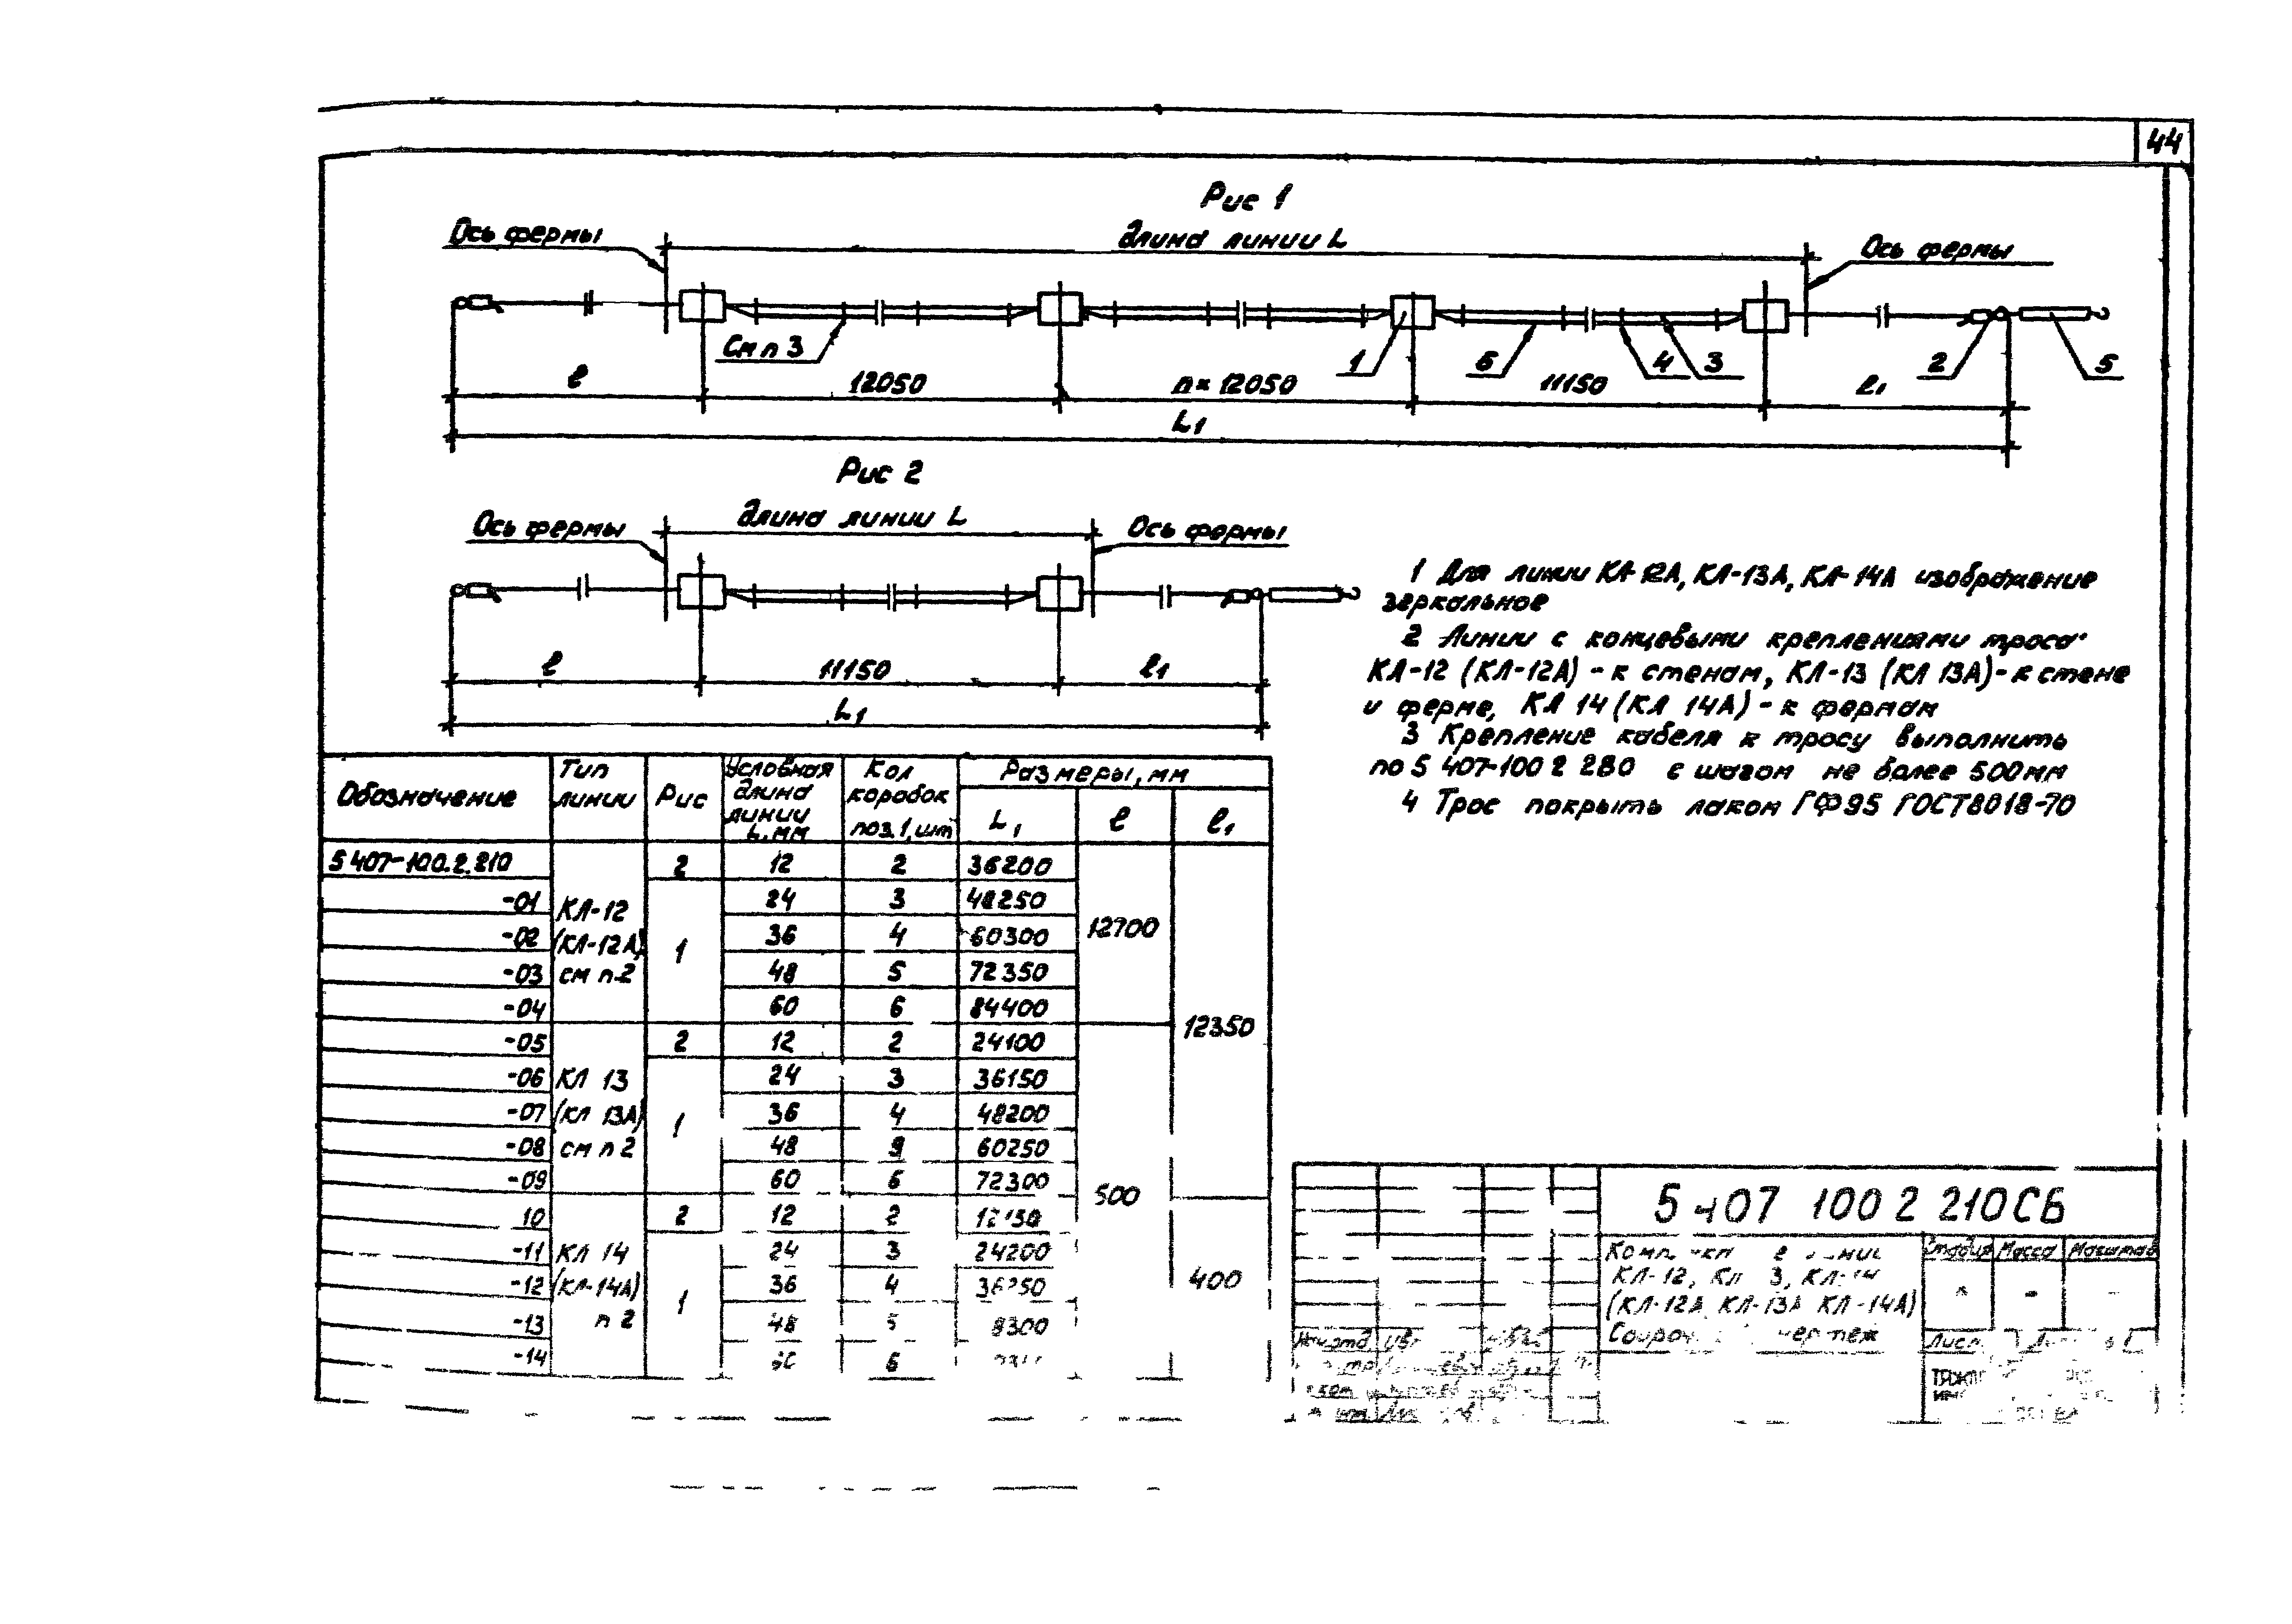 44
Рис 1
Ось фермы
Длина линии L
Ось фермы
См п 3
1
6
4
3
2
5
l
12050
п × 12050
11150
l1
L1
Рис 2
Ось фермы
Длина линии L
Ось фермы
l
11150
l1
L1
1 Для линии КЛ-12А, КЛ-13А, КЛ-14А изображение
зеркальное
2 Линии с концевыми креплениями троса
КЛ-12 (КЛ-12А) - к стенам, КЛ-13 (КЛ 13А) - к стене
и ферме, КЛ 14 (КЛ 14А) - к фермам
3 Крепление кабеля к тросу выполнить
по 5 407-100 2 280 с шагом не более 500 мм
4 Трос покрыть лаком ГФ 95 ГОСТ 8018-70
Обозначение Тип линии Рис Условная длина линии L, мм Кол коробок поз. 1, шт Размеры, мм
L1 l l1
5 407-100.2.210 2 12 2 36200
-01 КЛ-12 24 3 48250
-02 (КЛ-12А) 1 36 4 60300 12700
-03 см п.2 48 5 72350
-04 60 6 84400
-05 2 12 2 24100 12350
-06 КЛ 13 24 3 36150
-07 (КЛ 13А) 1 36 4 48200
-08 см п 2 48 60250
-09 60 6 72300 500
10 2 12 2
-11 КЛ 14 24 3 24200
-12 (КЛ-14А) 36 4 400
-13 п 2 1 48 5 8300
-14 6
5 407 100 2 210СБ
КЛ-12, Кл 3, КЛ-14
(КЛ-12А КЛ-13А КЛ-14А)
Стадия Масса Масштаб